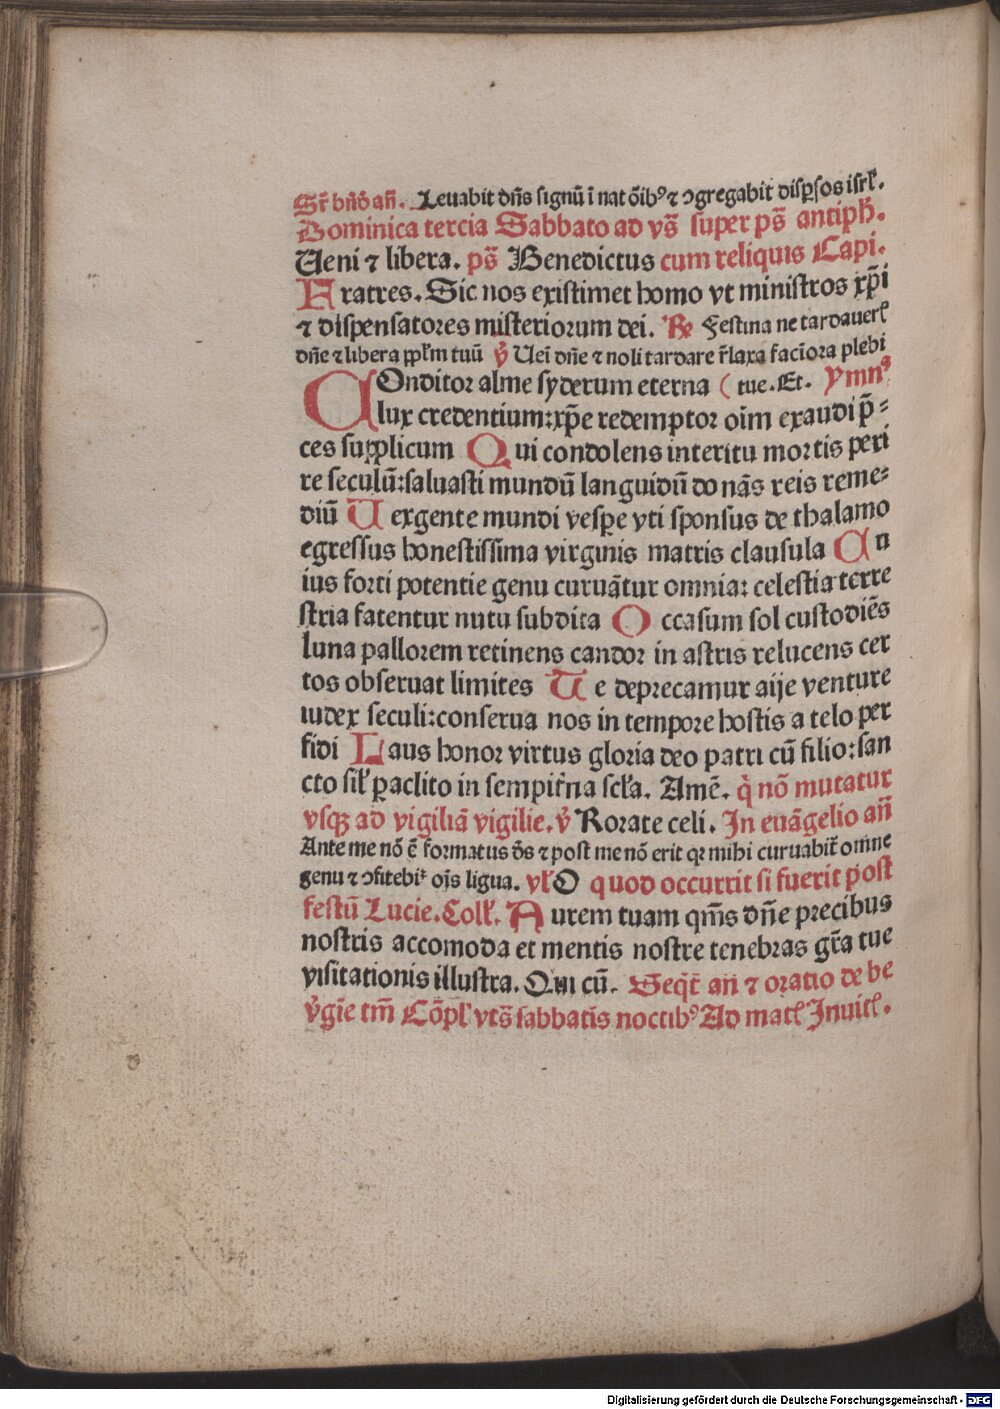 Sr̄ bn̄d an̄. Leuabit dn̄s signū ī nat ōibꝰ ⁊ ꝯgregabit disꝑsos isrl̄.
Dominica tercia Sabbato ad vs̄ super ps̄ antiph̄.
Ueni ⁊ libera. ps̄ Benedictus cum reliquis Capi.
Fratres. Sic nos existimet homo vt ministros xp̄i
⁊ dispensatores misteriorum dei. R̄e Festina ne tardauerꝭ
dn̄e ⁊ libera pp̄lm tuū v̄ Uei dn̄e ⁊ noli tardare r̄laxa faciōra plebi
COnditor alme syderum eterna ( tue. Et. Ymnꝰ
lux credentium: xp̄e redemptor oīm exaudi p̄-
ces supplicum Qui condolens interitu mortis peri
re seculū: saluasti mundū languidū donās reis reme-
diū Uergente mundi vesꝑe vti sponsus de thalamo
egressus honestissima virginis matris clausula Cu
ius forti potentie genu curuātur omnia: celestia terre
stria fatentur nutu subdita Occasum sol custodiēs
luna pallorem retinens candor in astris relucens cer
tos obseruat limites Te deprecamur aije venture
iudex seculi: conserua nos in tempore hostis a telo per
fidi Laus honor virtus gloria deo patri cū filio: san
cto sil̄ ꝑaclito in sempit̄na scl̄a. Amē. q̄ nō mutatur
vsqꝫ ad vigiliā vigilie. v̄ Rorate celi. In euāgelio an̄
Ante me nō ē formatus ds̄ ⁊ post me nō erit qꝛ mihi curuabit̄ omne
genu ⁊ ꝯfitebit̄ oīs ligua. vl̄ O quod occurrit si fuerit post
festū Lucie. Coll̄. Aurem tuam qm̄s dn̄e precibus
nostris accomoda et mentis nostre tenebras gr̄a tue
visitationis illustra. Qui cū. Seqt̄ an̄ ⁊ oratio de be
v̄gīe tm̄ Cōpl̄ vts̄ sabbatīs noctibꝰ Ad matꝭ Inuitꝭ.
Digitalisierung gefördert durch die Deutsche Forschungsgemeinschaft - DFG